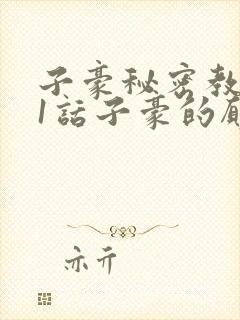 子豪秘密教
1話子豪的
亦亓